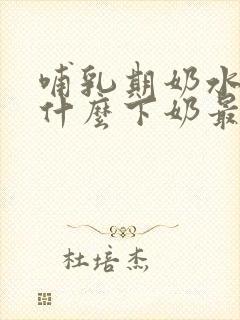 哺乳期奶水
什麼下奶最
杜培杰